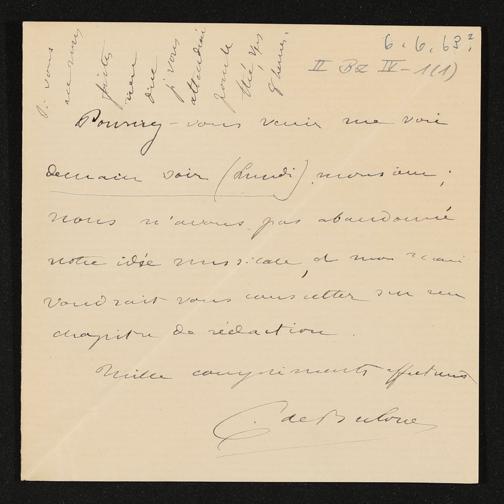 6.6.68?
II BZ IV-1(1)
Si vous
ne me
faites
rien
dire
je vous
attendrai
pour le
thé, vers
9 heures.
Pourrez-vous venir me voir
demain soir (Lundi), monsieur;
nous n'avons pas abandonné
notre idée musicale, et mon mari
voudrait vous consulter sur un
chapitre de rédaction.
Mille compliments affectueux
C. de Bulow